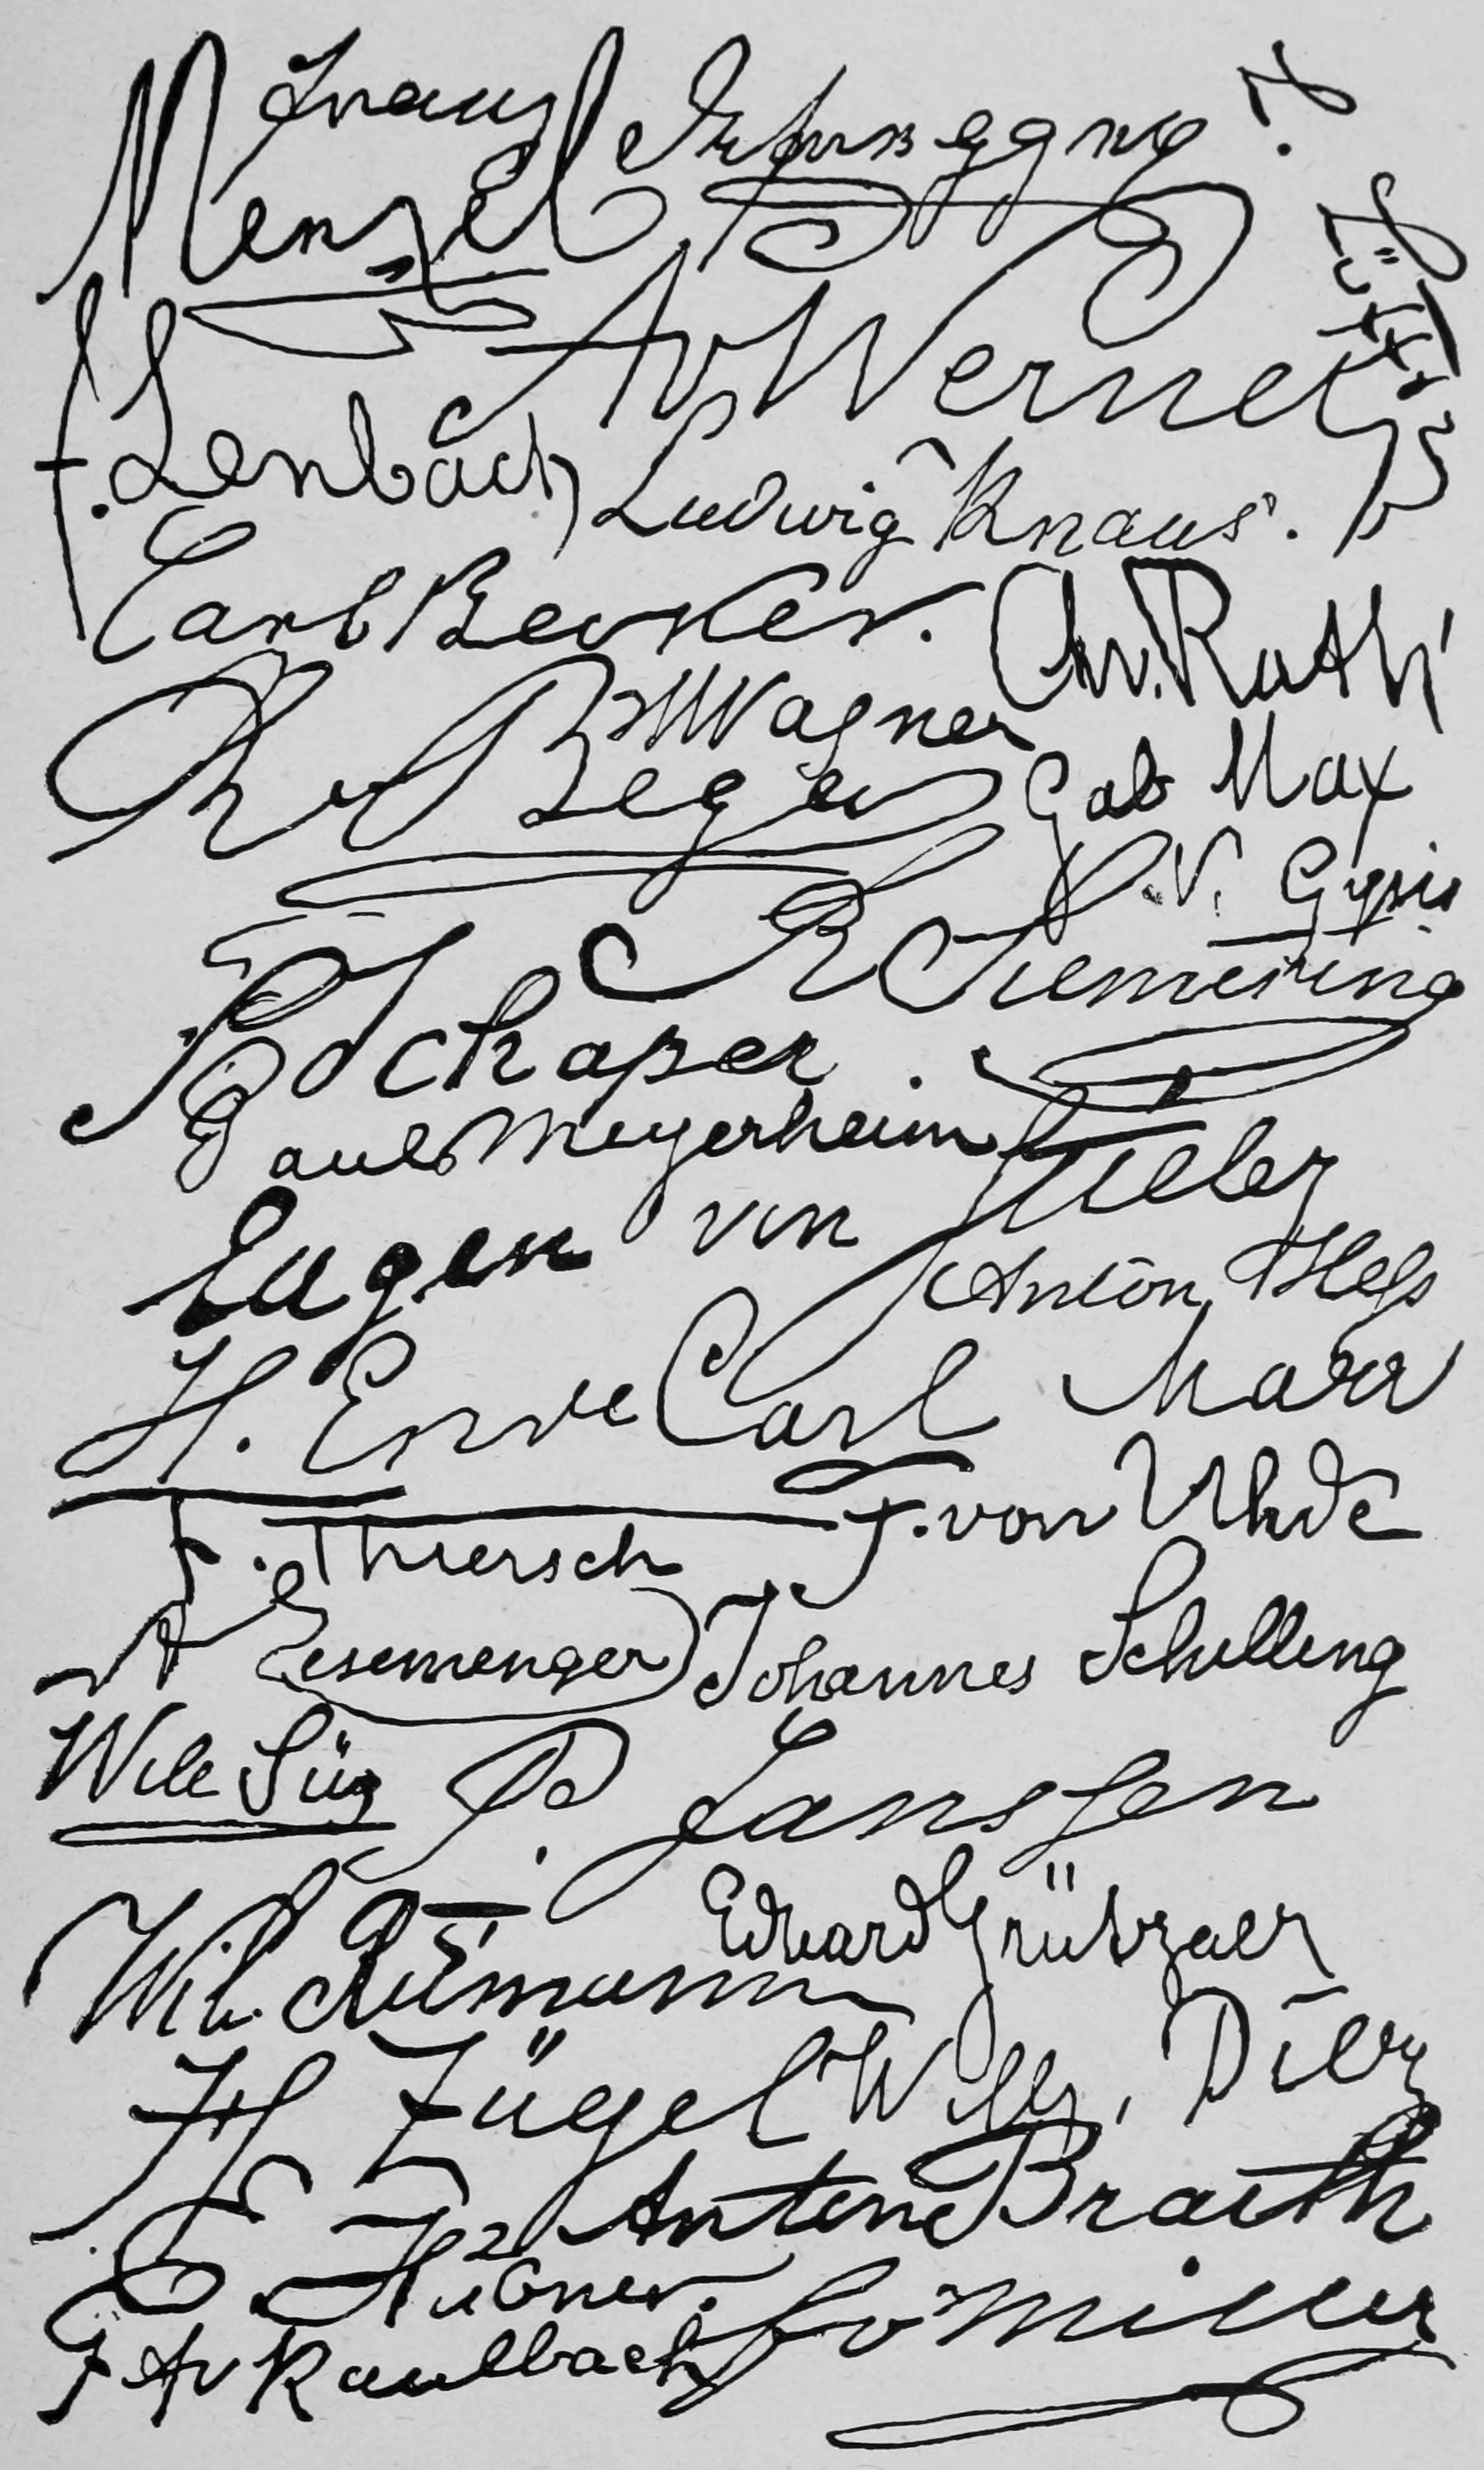 Menzel
A v Werner
F. Lenbach
Ludwig Knaus.
Carl Becker.
Chr. Roth
P M Wagner
R Begas
Gab Max
N. Gysis
R Siemering
F Schaper.
Paul Meyerheim
Eugen von Stieler
Anton Heß
H. Ende
Carl Marr
F. Thiersch
F. von Uhde
A Eisenmenger
Johannes Schilling
P. Janssen
Wilh. Rümann
Eduard Grützner
H Zügel
Wilh. Diez
Anton Braith
E Hübner.
F. v Miller
F A v Kaulbach